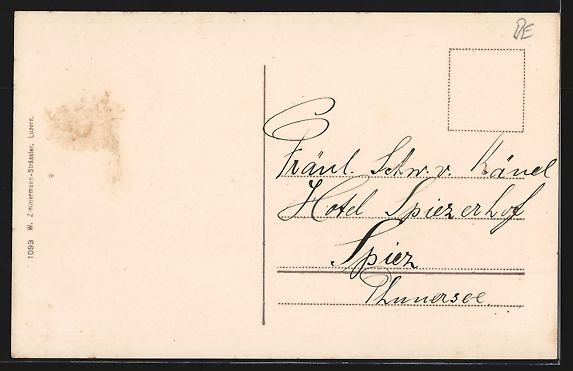 BE
1093 W. Zimmermann-Strässler, Luzern.
Fräul. Schw. v. Känel
Hotel Spiezerhof
Spiez
Thunersee.